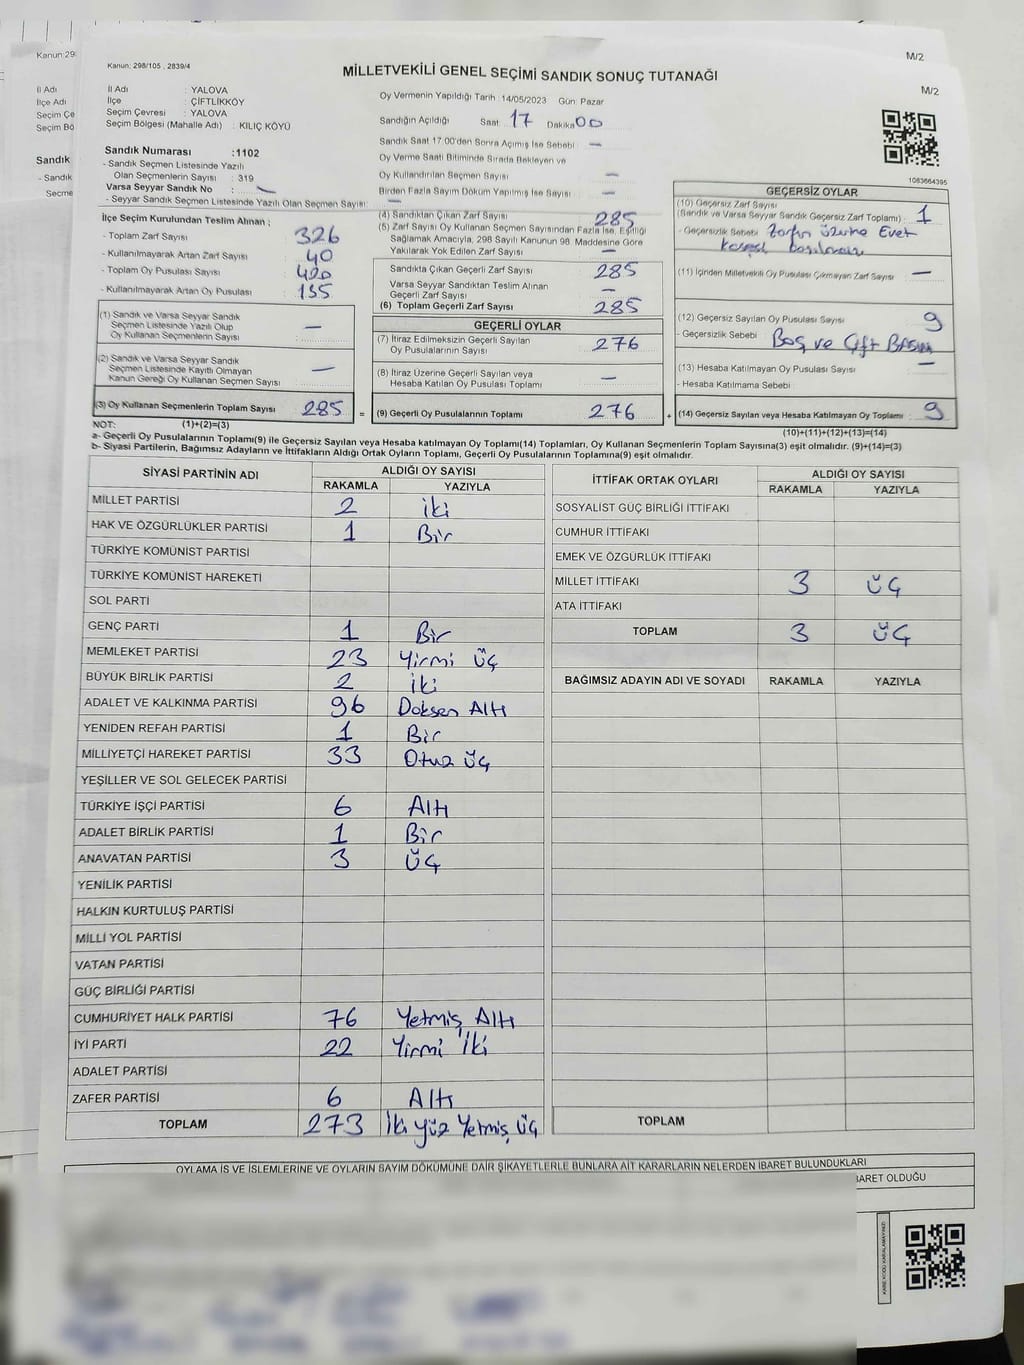 Kanun: 298/105 , 2839/4
MİLLETVEKİLİ GENEL SEÇİMİ SANDIK SONUÇ TUTANAĞI
M/2
M/2
Kanun 29
İl Adı
İlçe Adı
Seçim Çe
Seçim Bö
Sandık
- Sandık
Seçme
İl Adı : YALOVA
İlçe : ÇİFTLİKKÖY
Seçim Çevresi : YALOVA
Seçim Bölgesi (Mahalle Adı) : KILIÇ KÖYÜ
Sandık Numarası :1102
- Sandık Seçmen Listesinde Yazılı
Olan Seçmenlerin Sayısı : 319
Varsa Seyyar Sandık No : —
- Seyyar Sandık Seçmen Listesinde Yazılı Olan Seçmen Sayısı: —
Oy Vermenin Yapıldığı Tarih : 14/05/2023 Gün: Pazar
Sandığın Açıldığı Saat 17 Dakika 00
Sandık Saat 17:00'den Sonra Açılmış İse Sebebi : —
Oy Verme Saati Bitiminde Sırada Bekleyen ve
Oy Kullandırılan Seçmen Sayısı : —
Birden Fazla Sayım Döküm Yapılmış İse Sayısı : —
1083664395
İlçe Seçim Kurulundan Teslim Alınan ;
- Toplam Zarf Sayısı : 326
- Kullanılmayarak Artan Zarf Sayısı : 40
- Toplam Oy Pusulası Sayısı : 420
- Kullanılmayarak Artan Oy Pusulası : 135
(1) Sandık ve Varsa Seyyar Sandık
Seçmen Listesinde Yazılı Olup
Oy Kullanan Seçmenlerin Sayısı : —
(2) Sandık ve Varsa Seyyar Sandık
Seçmen Listesinde Kayıtlı Olmayan
Kanun Gereği Oy Kullanan Seçmen Sayısı : —
(3) Oy Kullanan Seçmenlerin Toplam Sayısı : 285
(1)+(2)=(3)
(4) Sandıktan Çıkan Zarf Sayısı : 285
(5) Zarf Sayısı Oy Kullanan Seçmen Sayısından Fazla İse, Eşitliği
Sağlamak Amacıyla, 298 Sayılı Kanunun 98. Maddesine Göre
Yakılarak Yok Edilen Zarf Sayısı : —
Sandıkta Çıkan Geçerli Zarf Sayısı : 285
Varsa Seyyar Sandıktan Teslim Alınan
Geçerli Zarf Sayısı : —
(6) Toplam Geçerli Zarf Sayısı : 285
GEÇERLİ OYLAR
(7) İtiraz Edilmeksizin Geçerli Sayılan
Oy Pusulalarının Sayısı : 276
(8) İtiraz Üzerine Geçerli Sayılan veya
Hesaba Katılan Oy Pusulası Toplamı : —
= (9) Geçerli Oy Pusulalarının Toplamı : 276
GEÇERSİZ OYLAR
(10) Geçersiz Zarf Sayısı
(Sandık ve Varsa Seyyar Sandık Geçersiz Zarf Toplamı) : 1
- Geçersizlik Sebebi : Zarfın üzerine Evet
kaşesi basılması
(11) İçinden Milletvekili Oy Pusulası Çıkmayan Zarf Sayısı : —
(12) Geçersiz Sayılan Oy Pusulası Sayısı : 9
- Geçersizlik Sebebi : Boş ve Çift Basım
(13) Hesaba Katılmayan Oy Pusulası Sayısı : —
- Hesaba Katılmama Sebebi :
+ (14) Geçersiz Sayılan veya Hesaba Katılmayan Oy Toplamı : 9
(10)+(11)+(12)+(13)=(14)
NOT:
a- Geçerli Oy Pusulalarının Toplamı(9) ile Geçersiz Sayılan veya Hesaba katılmayan Oy Toplamı(14) Toplamları, Oy Kullanan Seçmenlerin Toplam Sayısına(3) eşit olmalıdır. (9)+(14)=(3)
b- Siyasi Partilerin, Bağımsız Adayların ve İttifakların Aldığı Ortak Oyların Toplamı, Geçerli Oy Pusulalarının Toplamına(9) eşit olmalıdır.
SİYASİ PARTİNİN ADI ALDIĞI OY SAYISI
RAKAMLA YAZIYLA
MİLLET PARTİSİ 2 iki
HAK VE ÖZGÜRLÜKLER PARTİSİ 1 Bir
TÜRKİYE KOMÜNİST PARTİSİ
TÜRKİYE KOMÜNİST HAREKETİ
SOL PARTİ
GENÇ PARTİ 1 Bir
MEMLEKET PARTİSİ 23 Yirmi üç
BÜYÜK BİRLİK PARTİSİ 2 iki
ADALET VE KALKINMA PARTİSİ 96 Doksan Altı
YENİDEN REFAH PARTİSİ 1 Bir
MİLLİYETÇİ HAREKET PARTİSİ 33 Otuz üç
YEŞİLLER VE SOL GELECEK PARTİSİ
TÜRKİYE İŞÇİ PARTİSİ 6 Altı
ADALET BİRLİK PARTİSİ 1 Bir
ANAVATAN PARTİSİ 3 üç
YENİLİK PARTİSİ
HALKIN KURTULUŞ PARTİSİ
MİLLİ YOL PARTİSİ
VATAN PARTİSİ
GÜÇ BİRLİĞİ PARTİSİ
CUMHURİYET HALK PARTİSİ 76 Yetmiş Altı
İYİ PARTİ 22 Yirmi İki
ADALET PARTİSİ
ZAFER PARTİSİ 6 Altı
TOPLAM 273 İki yüz Yetmiş üç
İTTİFAK ORTAK OYLARI ALDIĞI OY SAYISI
RAKAMLA YAZIYLA
SOSYALİST GÜÇ BİRLİĞİ İTTİFAKI
CUMHUR İTTİFAKI
EMEK VE ÖZGÜRLÜK İTTİFAKI
MİLLET İTTİFAKI 3 üç
ATA İTTİFAKI
TOPLAM 3 üç
BAĞIMSIZ ADAYIN ADI VE SOYADI RAKAMLA YAZIYLA
TOPLAM
OYLAMA İŞ VE İŞLEMLERİNE VE OYLARIN SAYIM DÖKÜMÜNE DAİR ŞİKAYETLERLE BUNLARA AİT KARARLARIN NELERDEN İBARET BULUNDUKLARI
BARET OLDUĞU
KARE KODU KARALAMAYINIZ!